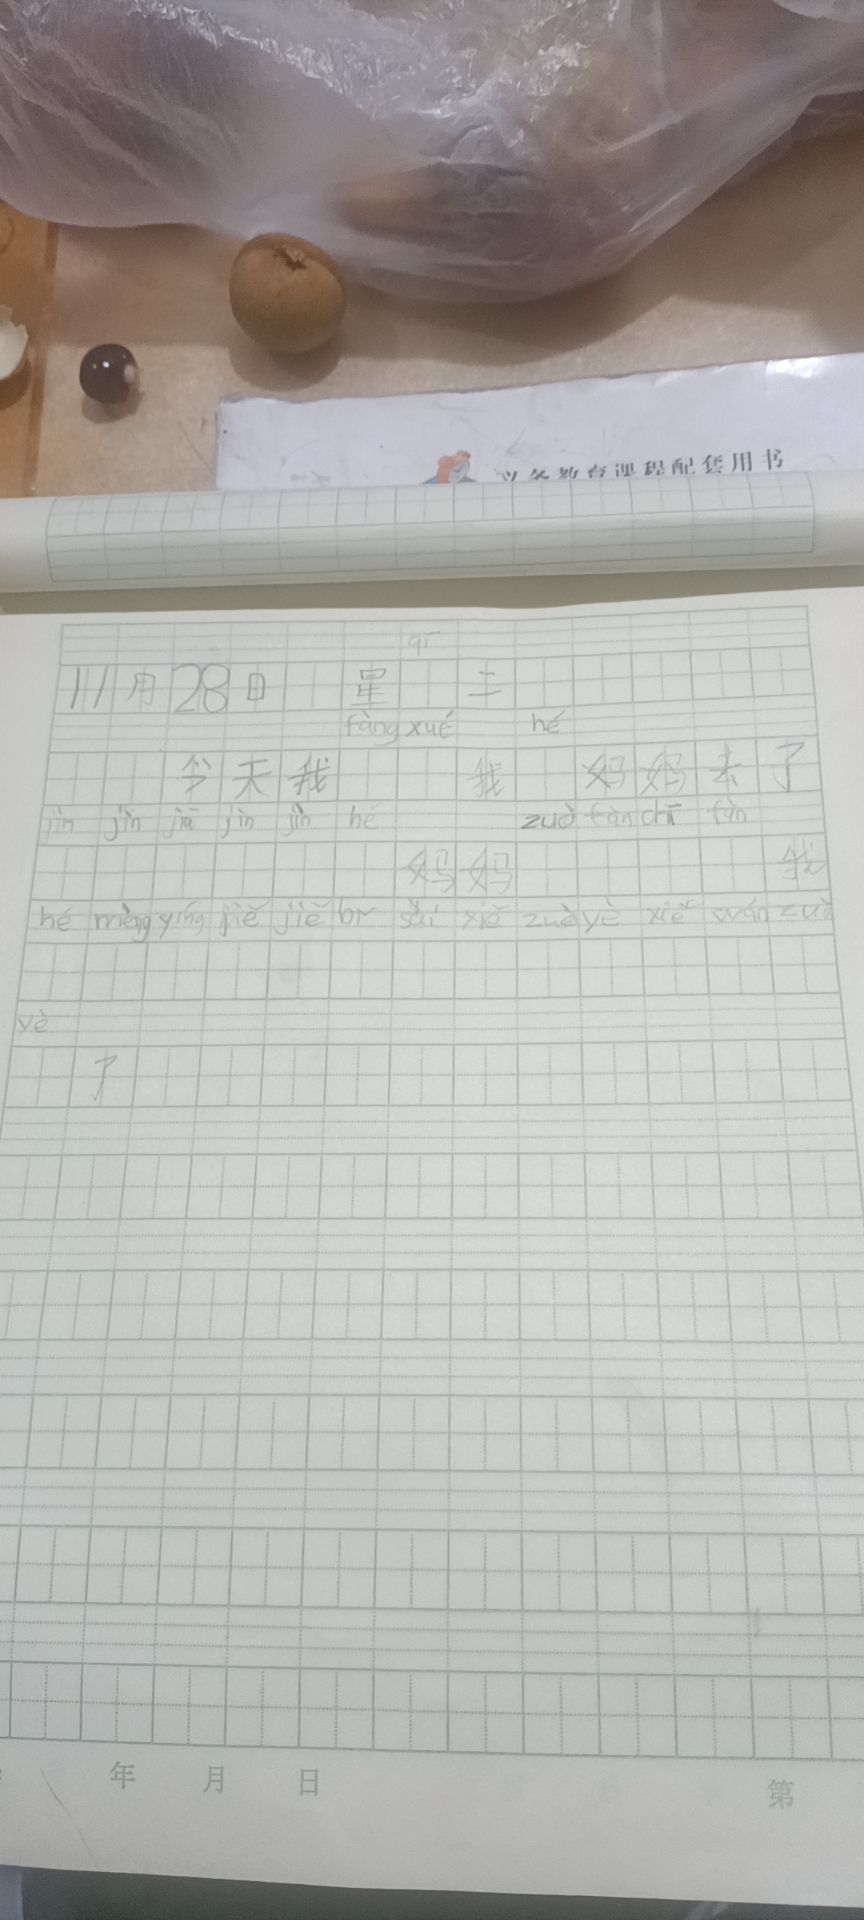 义务教育课程配套用书
qī
11月28日 星 三
fàng xué hé
今天我 我 妈妈去了
jìn jìn jiā jìn jìn hé zuò fàn chī fàn
妈妈 我
hé mièng yíng jiě jiě bǐ sài xiě zuò yè xiě wán zuò
yè
了
年 月 日 第